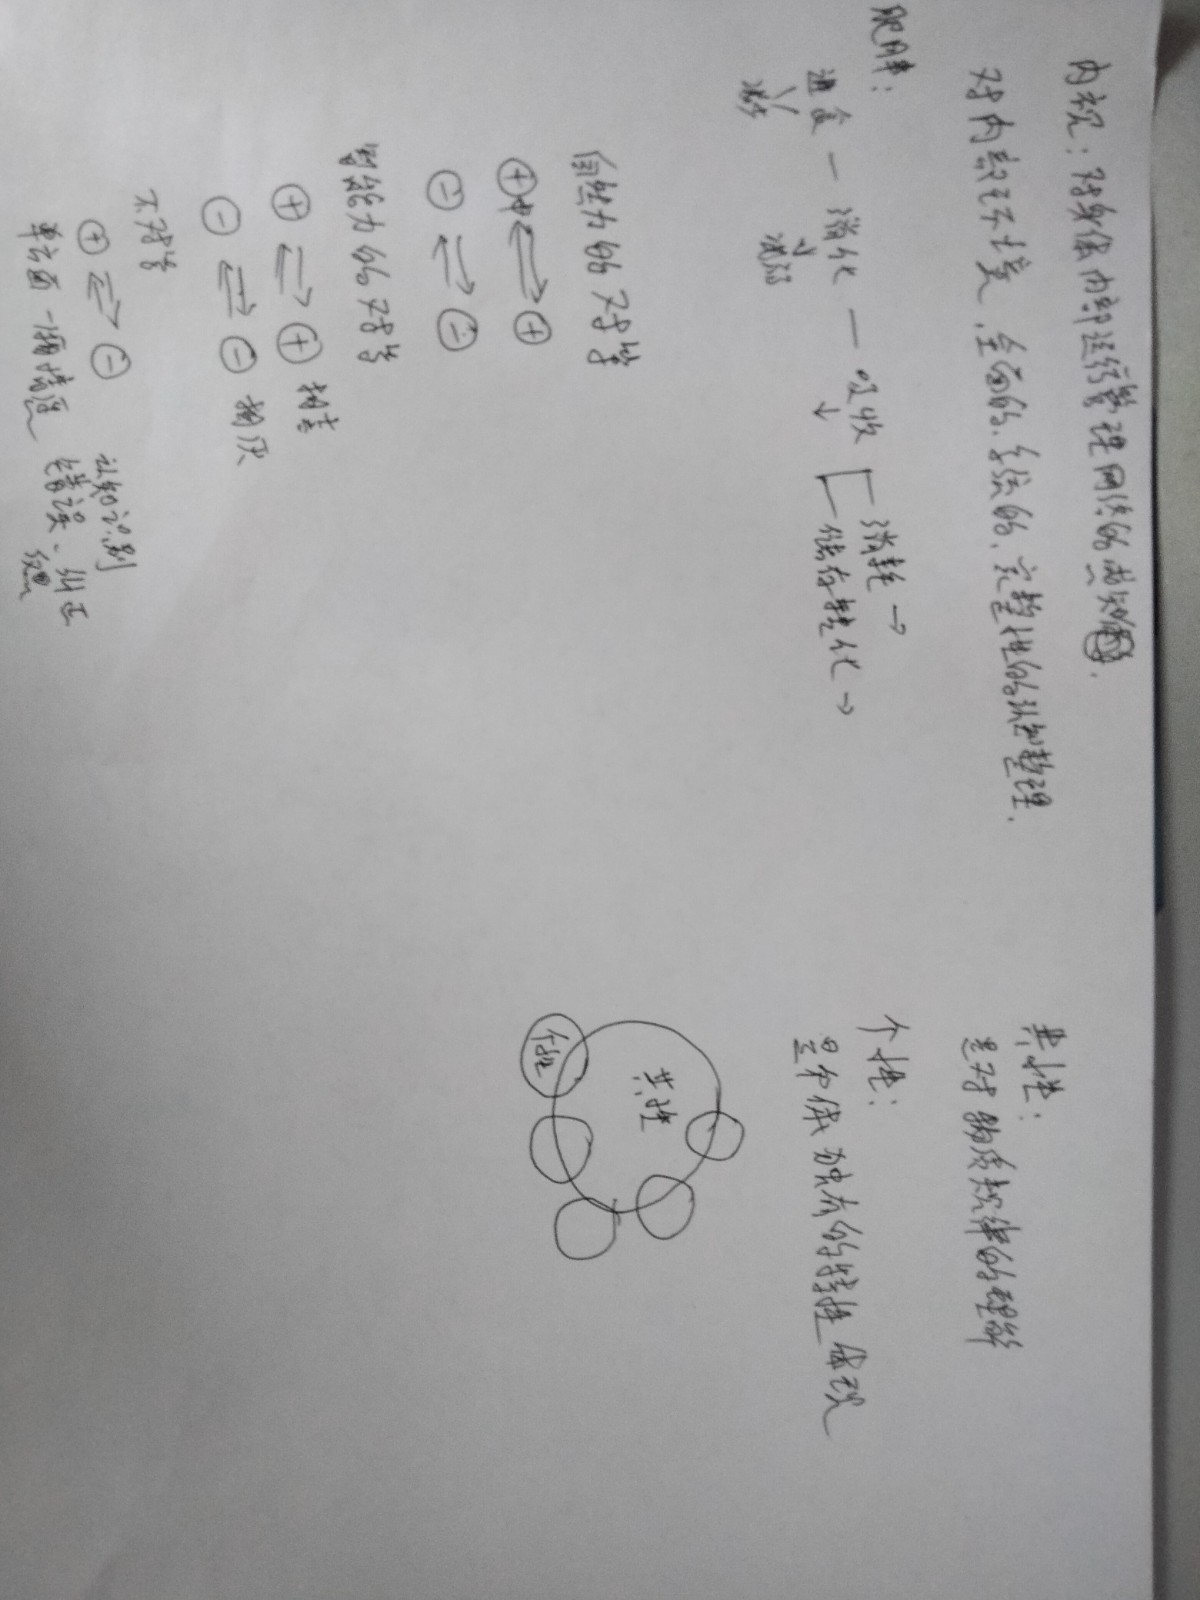 内视：对身体内部运行管理网络的感知.
对内部环境，全面的、系统的、完整性的认知整理.
肥胖：
进食 — 消化 — 吸收
消耗 →
储存转化 →
减少
减弱
自然力的对等
+ +
- -
智能力的对等
+ + 相吉
- -
不对等
+ -
单方面一厢情愿
认知识别
错误、纠正
共性：
是对物质规律的理解
个性：
是个体独有的特性体现
共性
个性